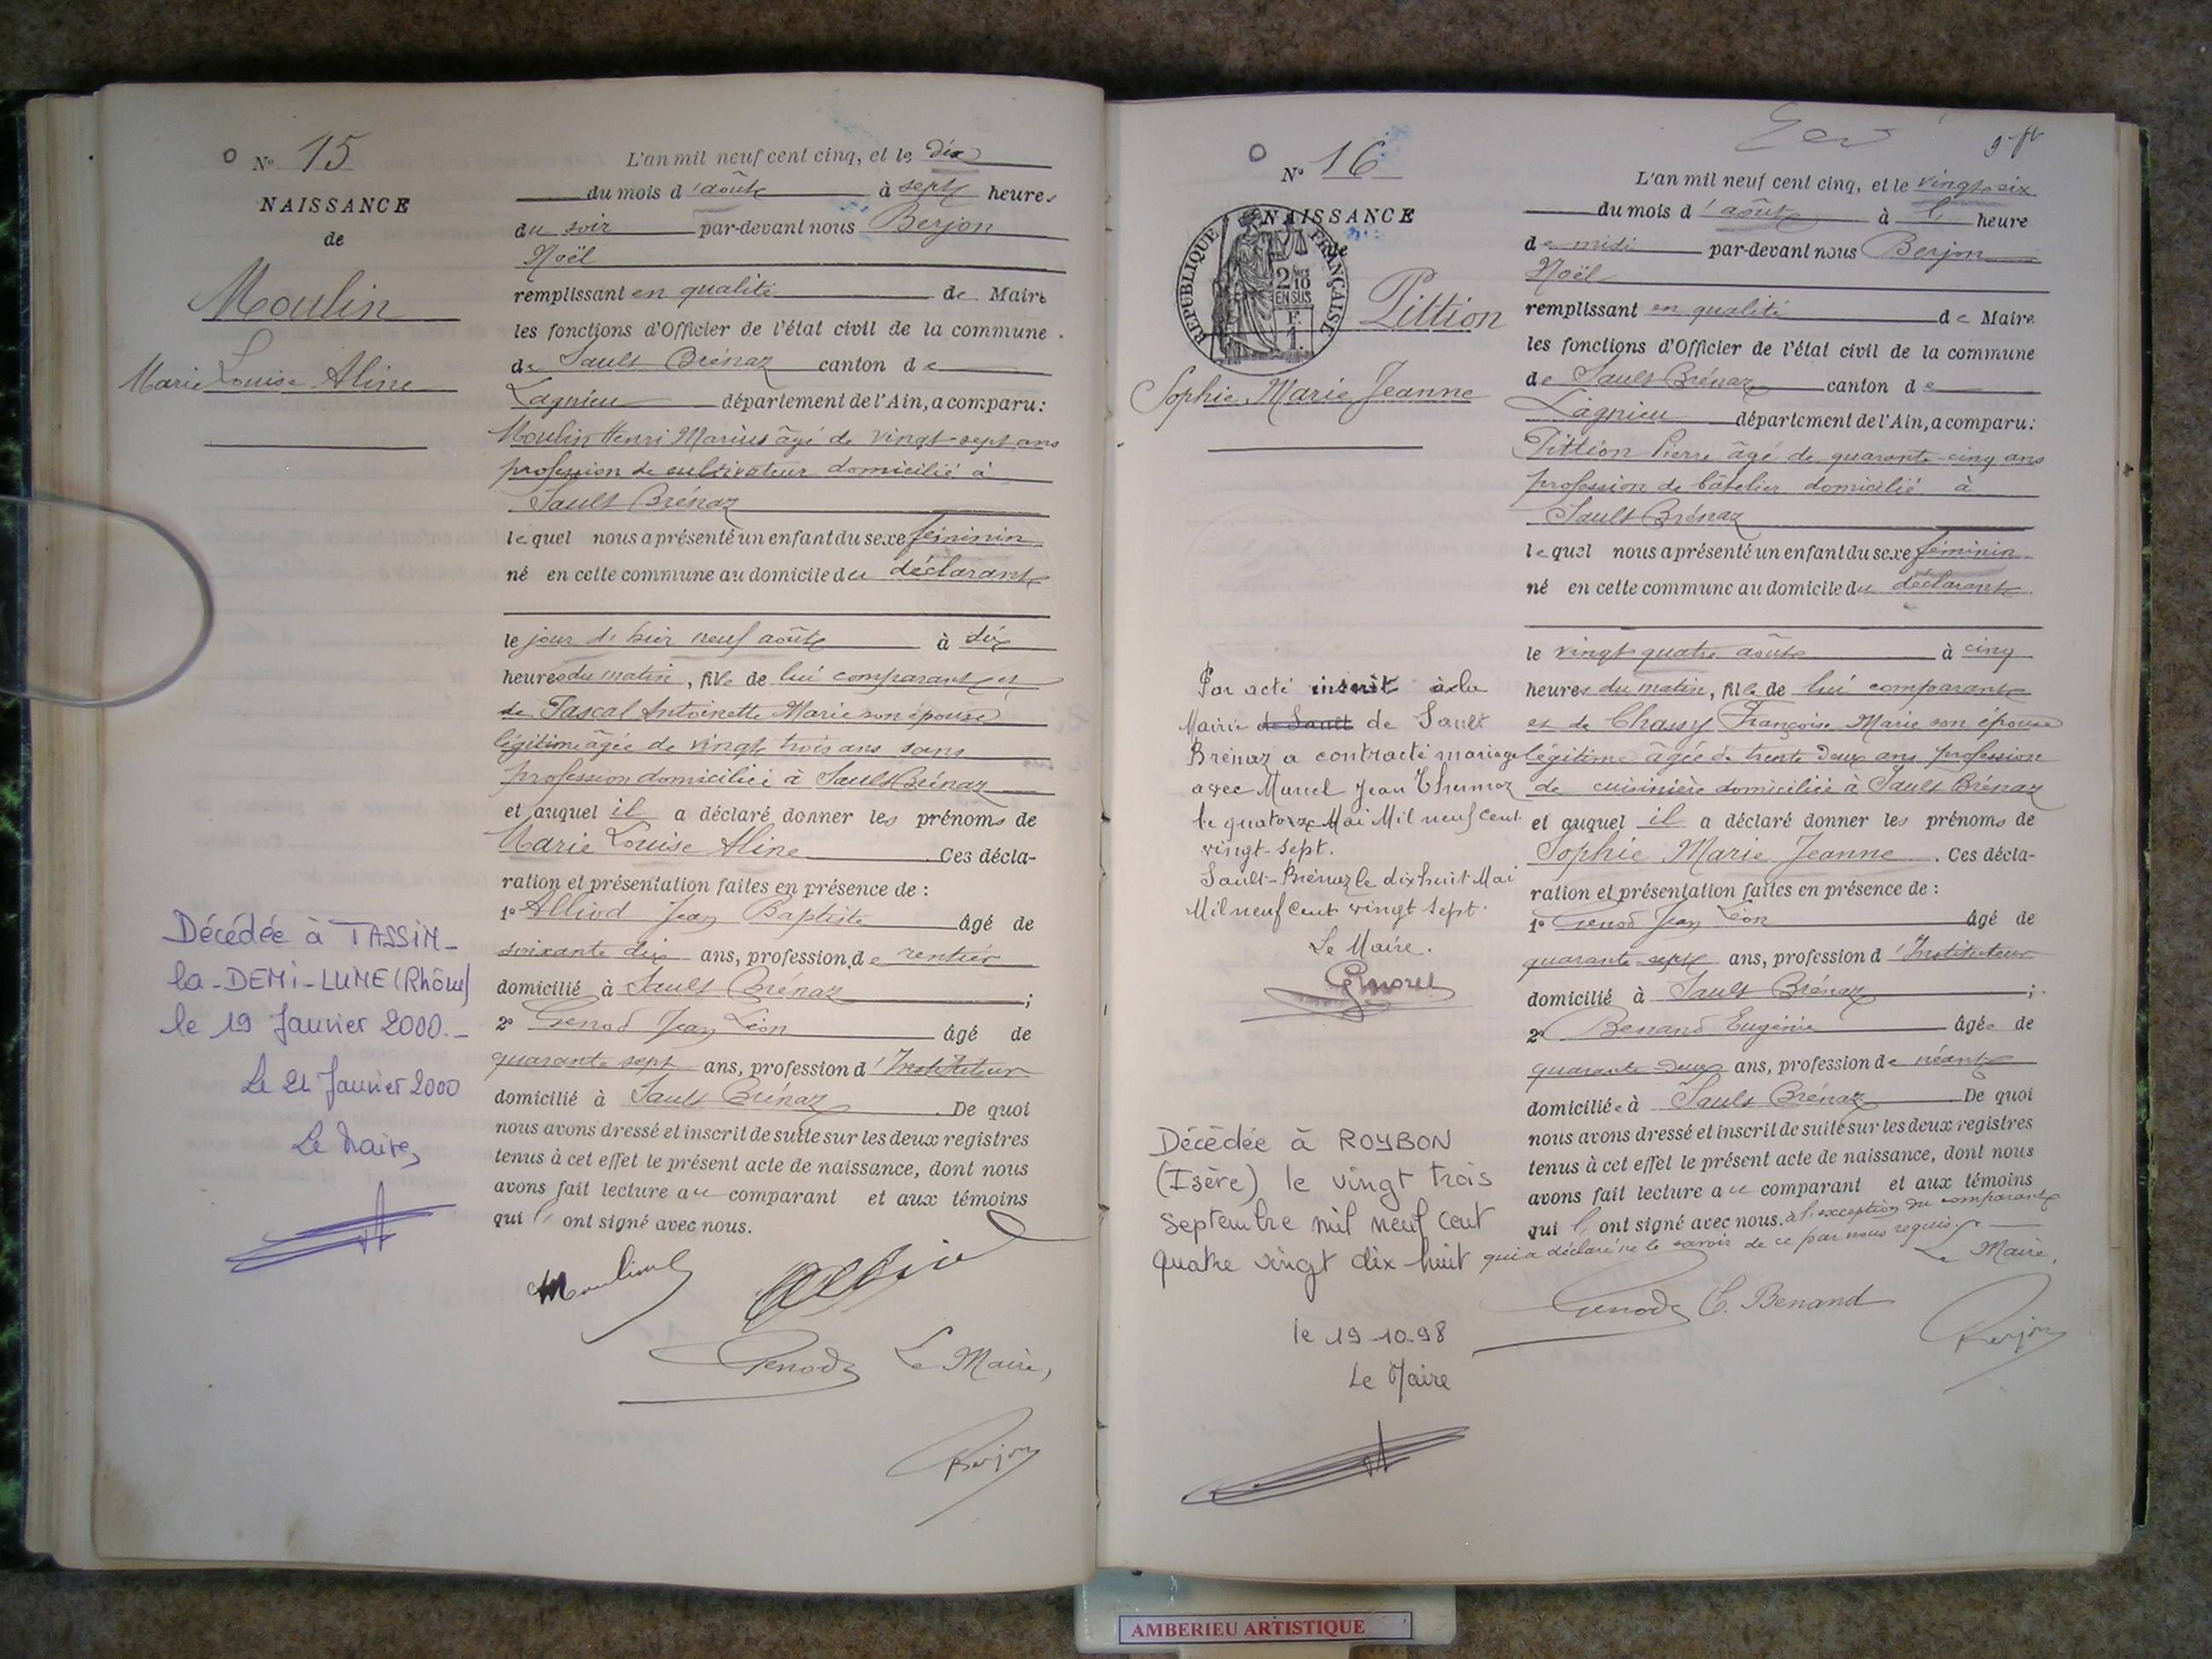 N° 15
NAISSANCE
de
Moulin
Marie Louise Aline
Décédée à TASSIN-
la-DEMI-LUNE (Rhône)
le 19 Janvier 2000.-
Le 21 Janvier 2000
Le Maire,
L'an mil neuf cent cinq, et le dix
du mois d'août à sept heures
du soir par-devant nous Berjon
Noël
remplissant en qualité de Maire
les fonctions d'Officier de l'état civil de la commune
de Sault Brénaz canton de
Lagnieu département de l'Ain, a comparu:
Moulin Henri Marius âgé de vingt-sept ans
profession de cultivateur domicilié à
Sault Brénaz
lequel nous a présenté un enfant du sexe féminin
né en cette commune au domicile du déclarant
le jour de hier neuf août à dix
heures du matin, fille de lui comparant et
de Pascal Antoinette Marie son épouse
légitime âgée de vingt trois ans sans
profession domiciliée à Sault Brénaz
et auquel il a déclaré donner les prénoms de
Marie Louise Aline. Ces décla-
ration et présentation faites en présence de :
1° Alliod Jean Baptiste âgé de
soixante dix ans, profession de rentier
domicilié à Sault Brénaz ;
2° Genod Jean Léon âgé de
quarante sept ans, profession d'Instituteur
domicilié à Sault Brénaz. De quoi
nous avons dressé et inscrit de suite sur les deux registres
tenus à cet effet le présent acte de naissance, dont nous
avons fait lecture au comparant et aux témoins
qui l'ont signé avec nous.
Moulin
Alliod
Genod Le Maire,
Berjon
9
N° 16
NAISSANCE
de
REPUBLIQUE FRANÇAISE
2/10
EN SUS
F.
1.
Pittion
Sophie Marie Jeanne
Par acte inscrit à la
Mairie de Sault de Sault
Brénaz a contracté mariage
avec Marcel Jean Thermoz
le quatorze Mai Mil neuf cent
vingt-sept.
Sault-Brénaz le dix huit Mai
Mil neuf cent vingt sept.
Le Maire.
Décédée à ROYBON
(Isère) le vingt trois
Septembre mil neuf cent
quatre vingt dix huit
le 19-10-98
Le Maire
L'an mil neuf cent cinq, et le vingt-six
du mois d'août à l' heure
de midi par-devant nous Berjon
Noël
remplissant en qualité de Maire
les fonctions d'Officier de l'état civil de la commune
de Sault Brénaz canton de
Lagnieu département de l'Ain, a comparu:
Pittion Pierre âgé de quarante-cinq ans
profession de bâtelier domicilié à
Sault Brénaz
lequel nous a présenté un enfant du sexe féminin
né en cette commune au domicile du déclarant
le vingt quatre août à cinq
heures du matin, fille de lui comparant
et de Chassy Françoise Marie son épouse
légitime âgée de trente deux ans profession
de cuisinière domiciliée à Sault Brénaz
et auquel il a déclaré donner les prénoms de
Sophie Marie Jeanne. Ces décla-
ration et présentation faites en présence de :
1° Genod Jean Léon âgé de
quarante-sept ans, profession d'Instituteur
domicilié à Sault Brénaz ;
2° Benand Eugénie âgée de
quarante deux ans, profession de néant
domiciliée à Sault Brénaz De quoi
nous avons dressé et inscrit de suite sur les deux registres
tenus à cet effet le présent acte de naissance, dont nous
avons fait lecture au comparant et aux témoins
qui l'ont signé avec nous. à l'exception du comparant
qui a déclaré ne le savoir de ce par nous requis.
Le Maire,
Genod E. Benand
Berjon
AMBERIEU ARTISTIQUE